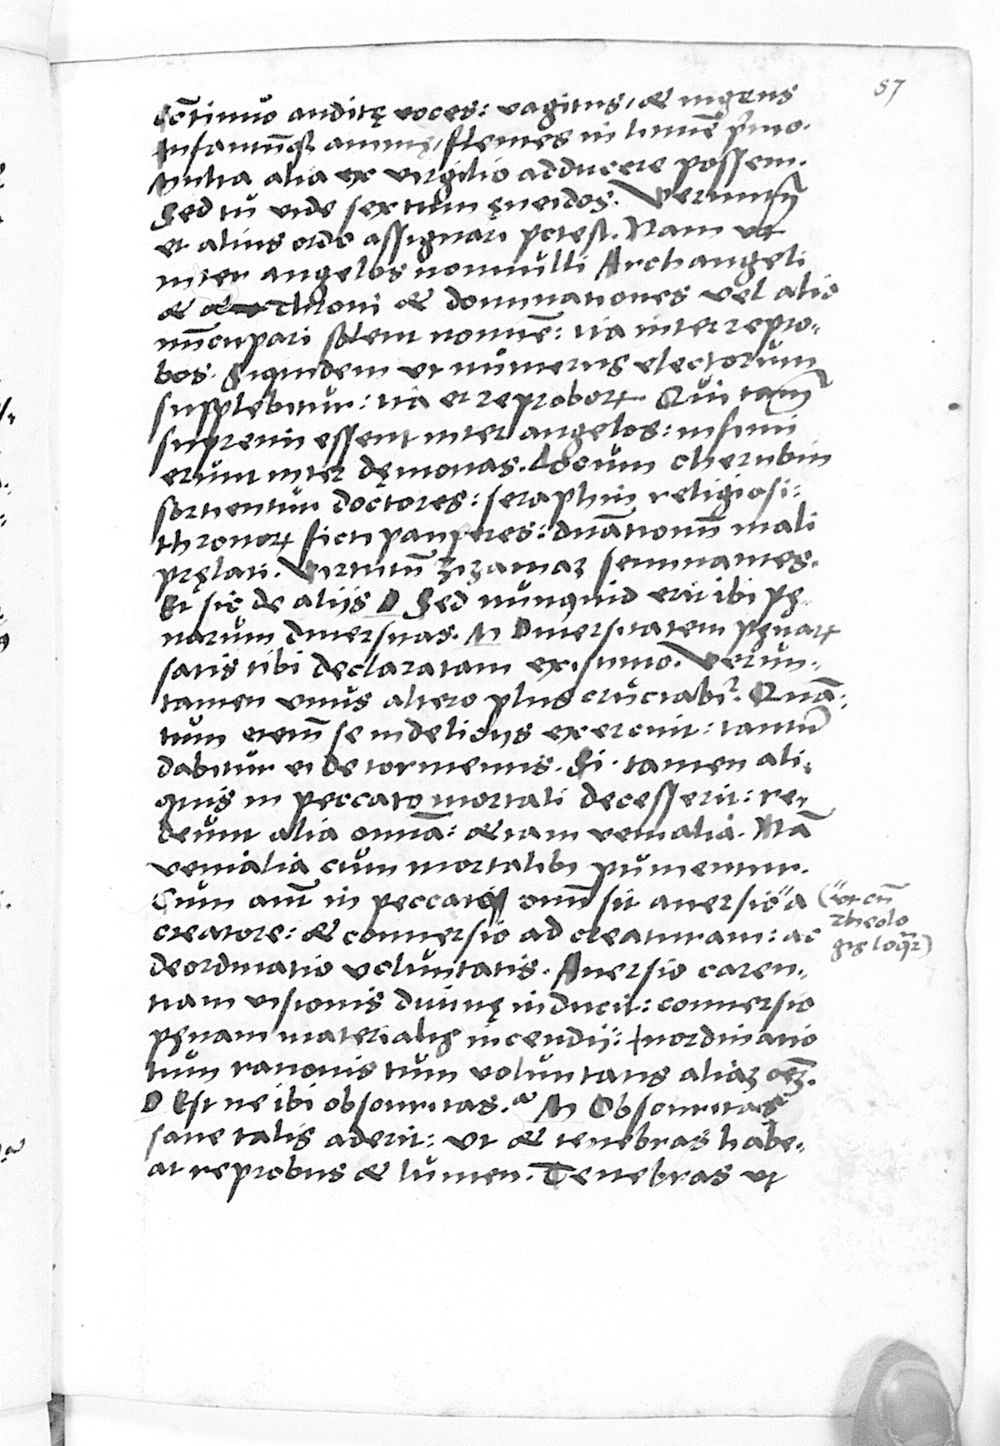 57
Cōtinuo auditę voces: vagitus, & ingens
Infantūq; animę, flentes in limīe pͥmo.
Multa alia ex virgilio adducere possem.
Sed tu vide sextum ęneidos. Verumtn̄
et alius ordo assignari potest. Nam ut
inter angelos nonnulli Archangeli
& & Throni & dominationes vel alio
nūcupari solent nomīe: ita inter repro-
bos. Siquidem ut numerus electorum
supplebitur: ita et reproborꝝ. Qui tam̄
supremi essent inter angelos: infimi
erunt inter dęmonas. Locum cherubin
sortientur doctores: seraphin religiosi:
thronorꝝ ficti pauperes: dn̄ationū mali
pręlati. Virtutū zizanias seminantes.
Et sic de aliis D Sed nunquid erit ibi pę-
narum diuersitas. M Diuersitatem pęnarꝝ
satis tibi declaratam existimo. Verun-
tamen unus altero plus cruciabiͭ. Quā-
tum etenī se in deliciis exercuit: tantū
dabitur ei de tormentis. Si tamen ali-
quis in peccato mortali decesserit: re-
deunt alia omnia: & iam venialia. Nā
venialia cum mortalibꝫ punientur.
Cum aūt in peccato omī sit auersio "a
creatore: & conuersio ad creaturam: ac
deordinatio voluntatis. Auersio caren-
tiam visionis diuinę inducit: conuersio
pęnam materialis incendii: Inordinatio
tum rationis tum voluntatis aliaꝫ oēꝫ.
D Est ne ibi obscuritas. M Obscuritas
sane talis aderit: ut & tenebras habe-
at reprobus & lumen. Tenebras ut
("ut cū
theolo
gis loqr̄)